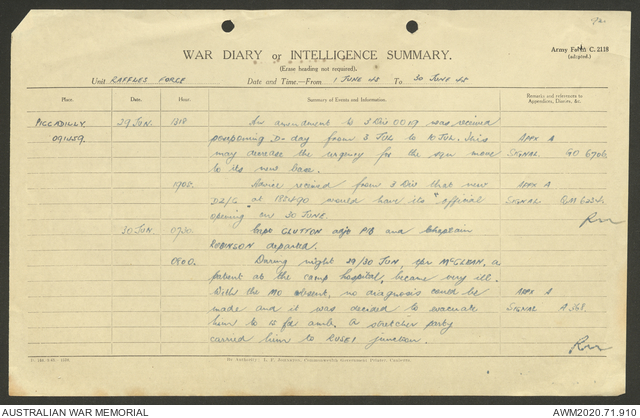 WAR DIARY or INTELLIGENCE SUMMARY.
Army Form C. 2118
(adapted.)
(Erase heading not required).
Unit RAFFLES FORCE Date and Time—From 1 JUNE 45 To 30 JUNE 45
Place. Date. Hour. Summary of Events and Information. Remarks and references to Appendices, Diaries, &c.
PICCADILLY 29 JUN. An amendment to 3 Div OO 19 was received
091459. postponing D-day from 3 JUL to 10 JUL. This APPX A
may decrease the urgency for the sqn move SIGNAL GO 6706
to its new base.
Advice received from 3 Div that new APPX A
at would have its "official SIGNAL
opening on 30 JUNE.
30 JUN 0730. Capt GLUTTON adjt PIB and Chaplain
ROBINSON departed.
0800. During night 29/30 JUN, McGLEAN, a
patient at the camp hospital, became very ill.
With the MO absent, no diagnosis could be APPX A
made and it was decided to evacuate SIGNAL A 368.
him to A stretcher party
carried him to junction.
AUSTRALIAN WAR MEMORIAL
AWM2020.71.910